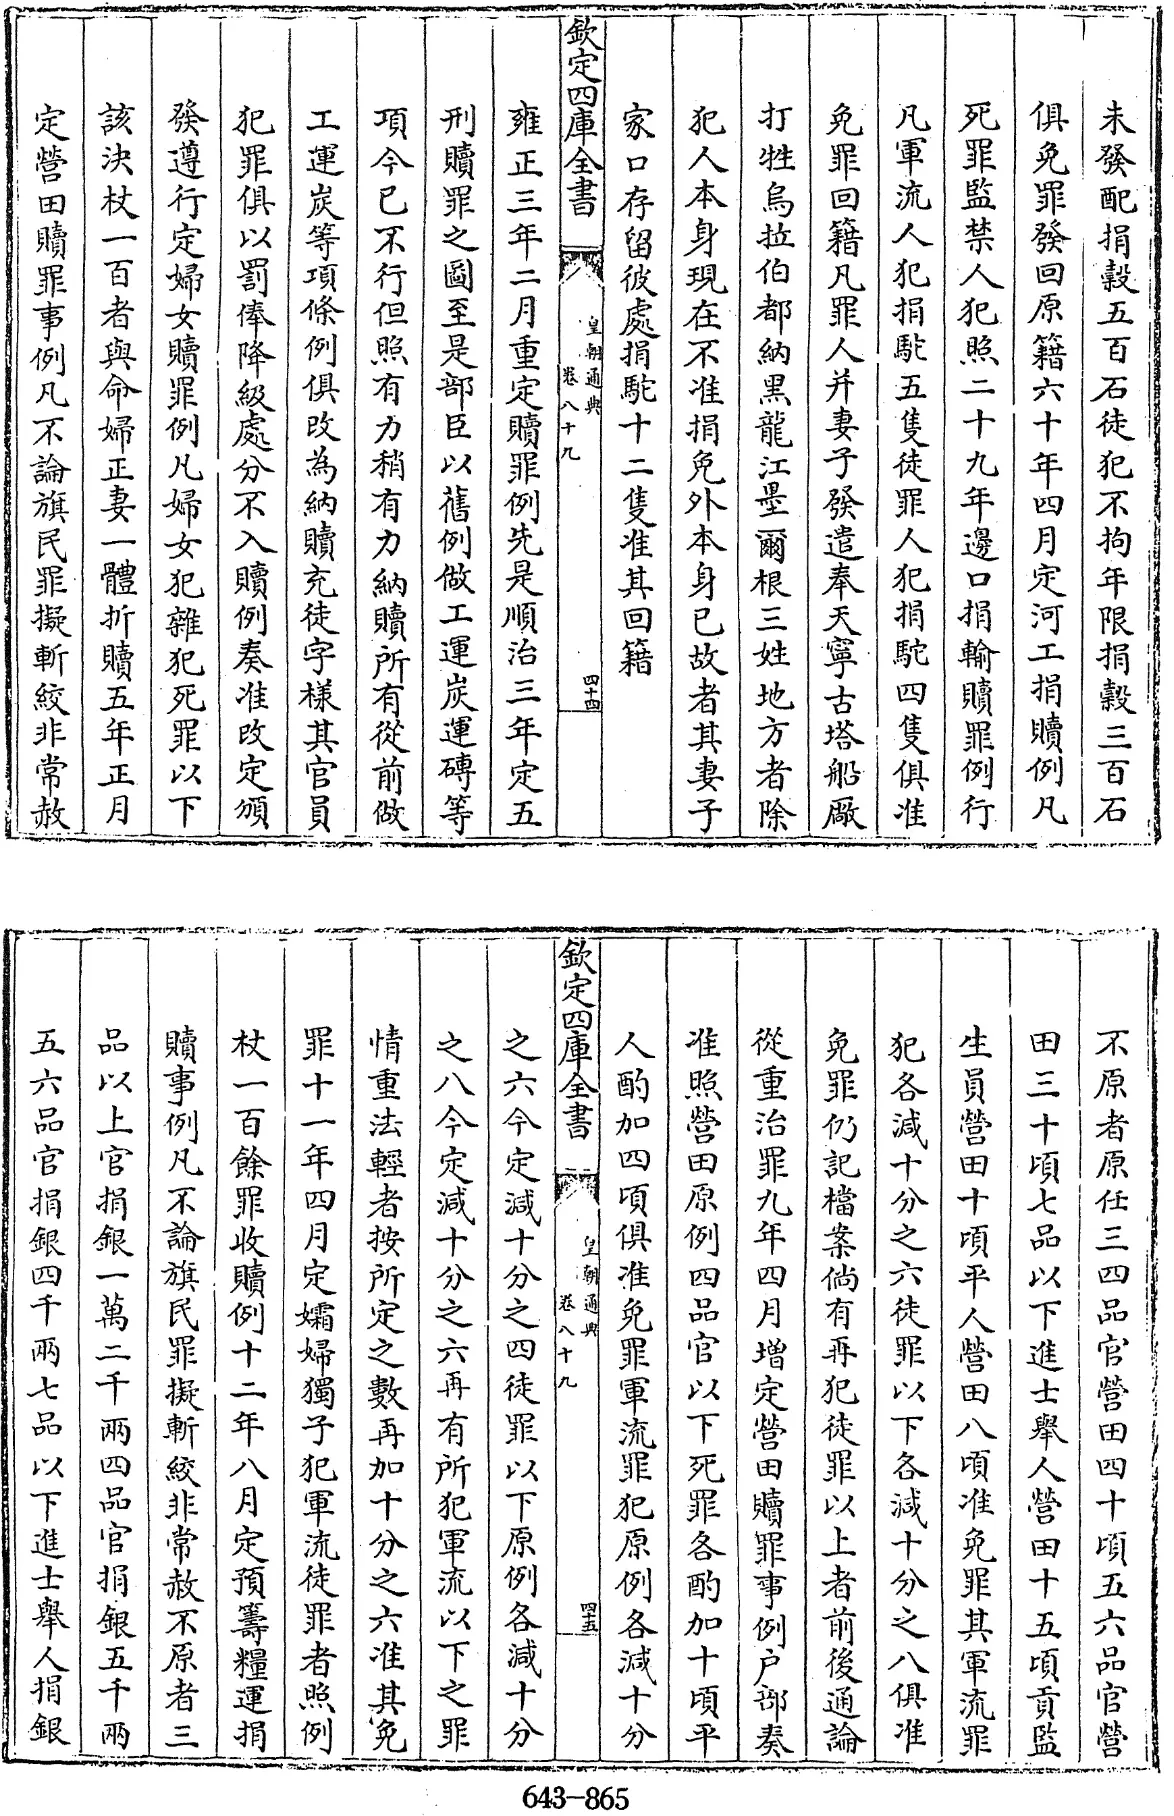 未發配捐穀五百石徒犯不拘年限捐穀三百石
俱免罪發回原籍六十年四月定河工捐贖例凡
死罪監禁人犯照二十九年邊口捐輸贖罪例行
凡軍流人犯捐駝五隻徒罪人犯捐駝四隻俱准
免罪回籍凡罪人并妻子發遣奉天寧古塔船廠
打牲烏拉伯都納黑龍江墨爾根三姓地方者除
犯人本身現在不准捐免外本身已故者其妻子
家口存留彼處捐駝十二隻准其回籍
欽定四庫全書
皇朝通典
卷八十九
四十四
雍正三年二月重定贖罪例先是順治三年定五
刑贖罪之圖至是部臣以舊例做工運炭運磚等
項今已不行但照有力稍有力納贖所有從前做
工運炭等項條例俱改為納贖充徒字樣其官員
犯罪俱以罰俸降級處分不入贖例奏准改定頒
發遵行定婦女贖罪例凡婦女犯雜犯死罪以下
該決杖一百者與命婦正妻一體折贖五年正月
定營田贖罪事例凡不論旗民罪擬斬絞非常赦
不原者原任三四品官營田四十頃五六品官營
田三十頃七品以下進士舉人營田十五頃貢監
生員營田十頃平人營田八頃准免罪其軍流罪
犯各減十分之六徒罪以下各減十分之八俱准
免罪仍記檔案倘有再犯徒罪以上者前後通論
從重治罪九年四月增定營田贖罪事例户部奏
准照營田原例四品官以下死罪各酌加十頃平
人酌加四頃俱准免罪軍流罪犯原例各減十分
欽定四庫全書
皇朝通典
卷八十九
四十五
之六今定減十分之四徒罪以下原例各減十分
之八今定減十分之六再有所犯軍流以下之罪
情重法輕者按所定之數再加十分之六准其免
罪十一年四月定孀婦獨子犯軍流徒罪者照例
杖一百餘罪收贖例十二年八月定預籌糧運捐
贖事例凡不論旗民罪擬斬絞非常赦不原者三
品以上官捐銀一萬二千兩四品官捐銀五千兩
五六品官捐銀四千兩七品以下進士舉人捐銀
643-865